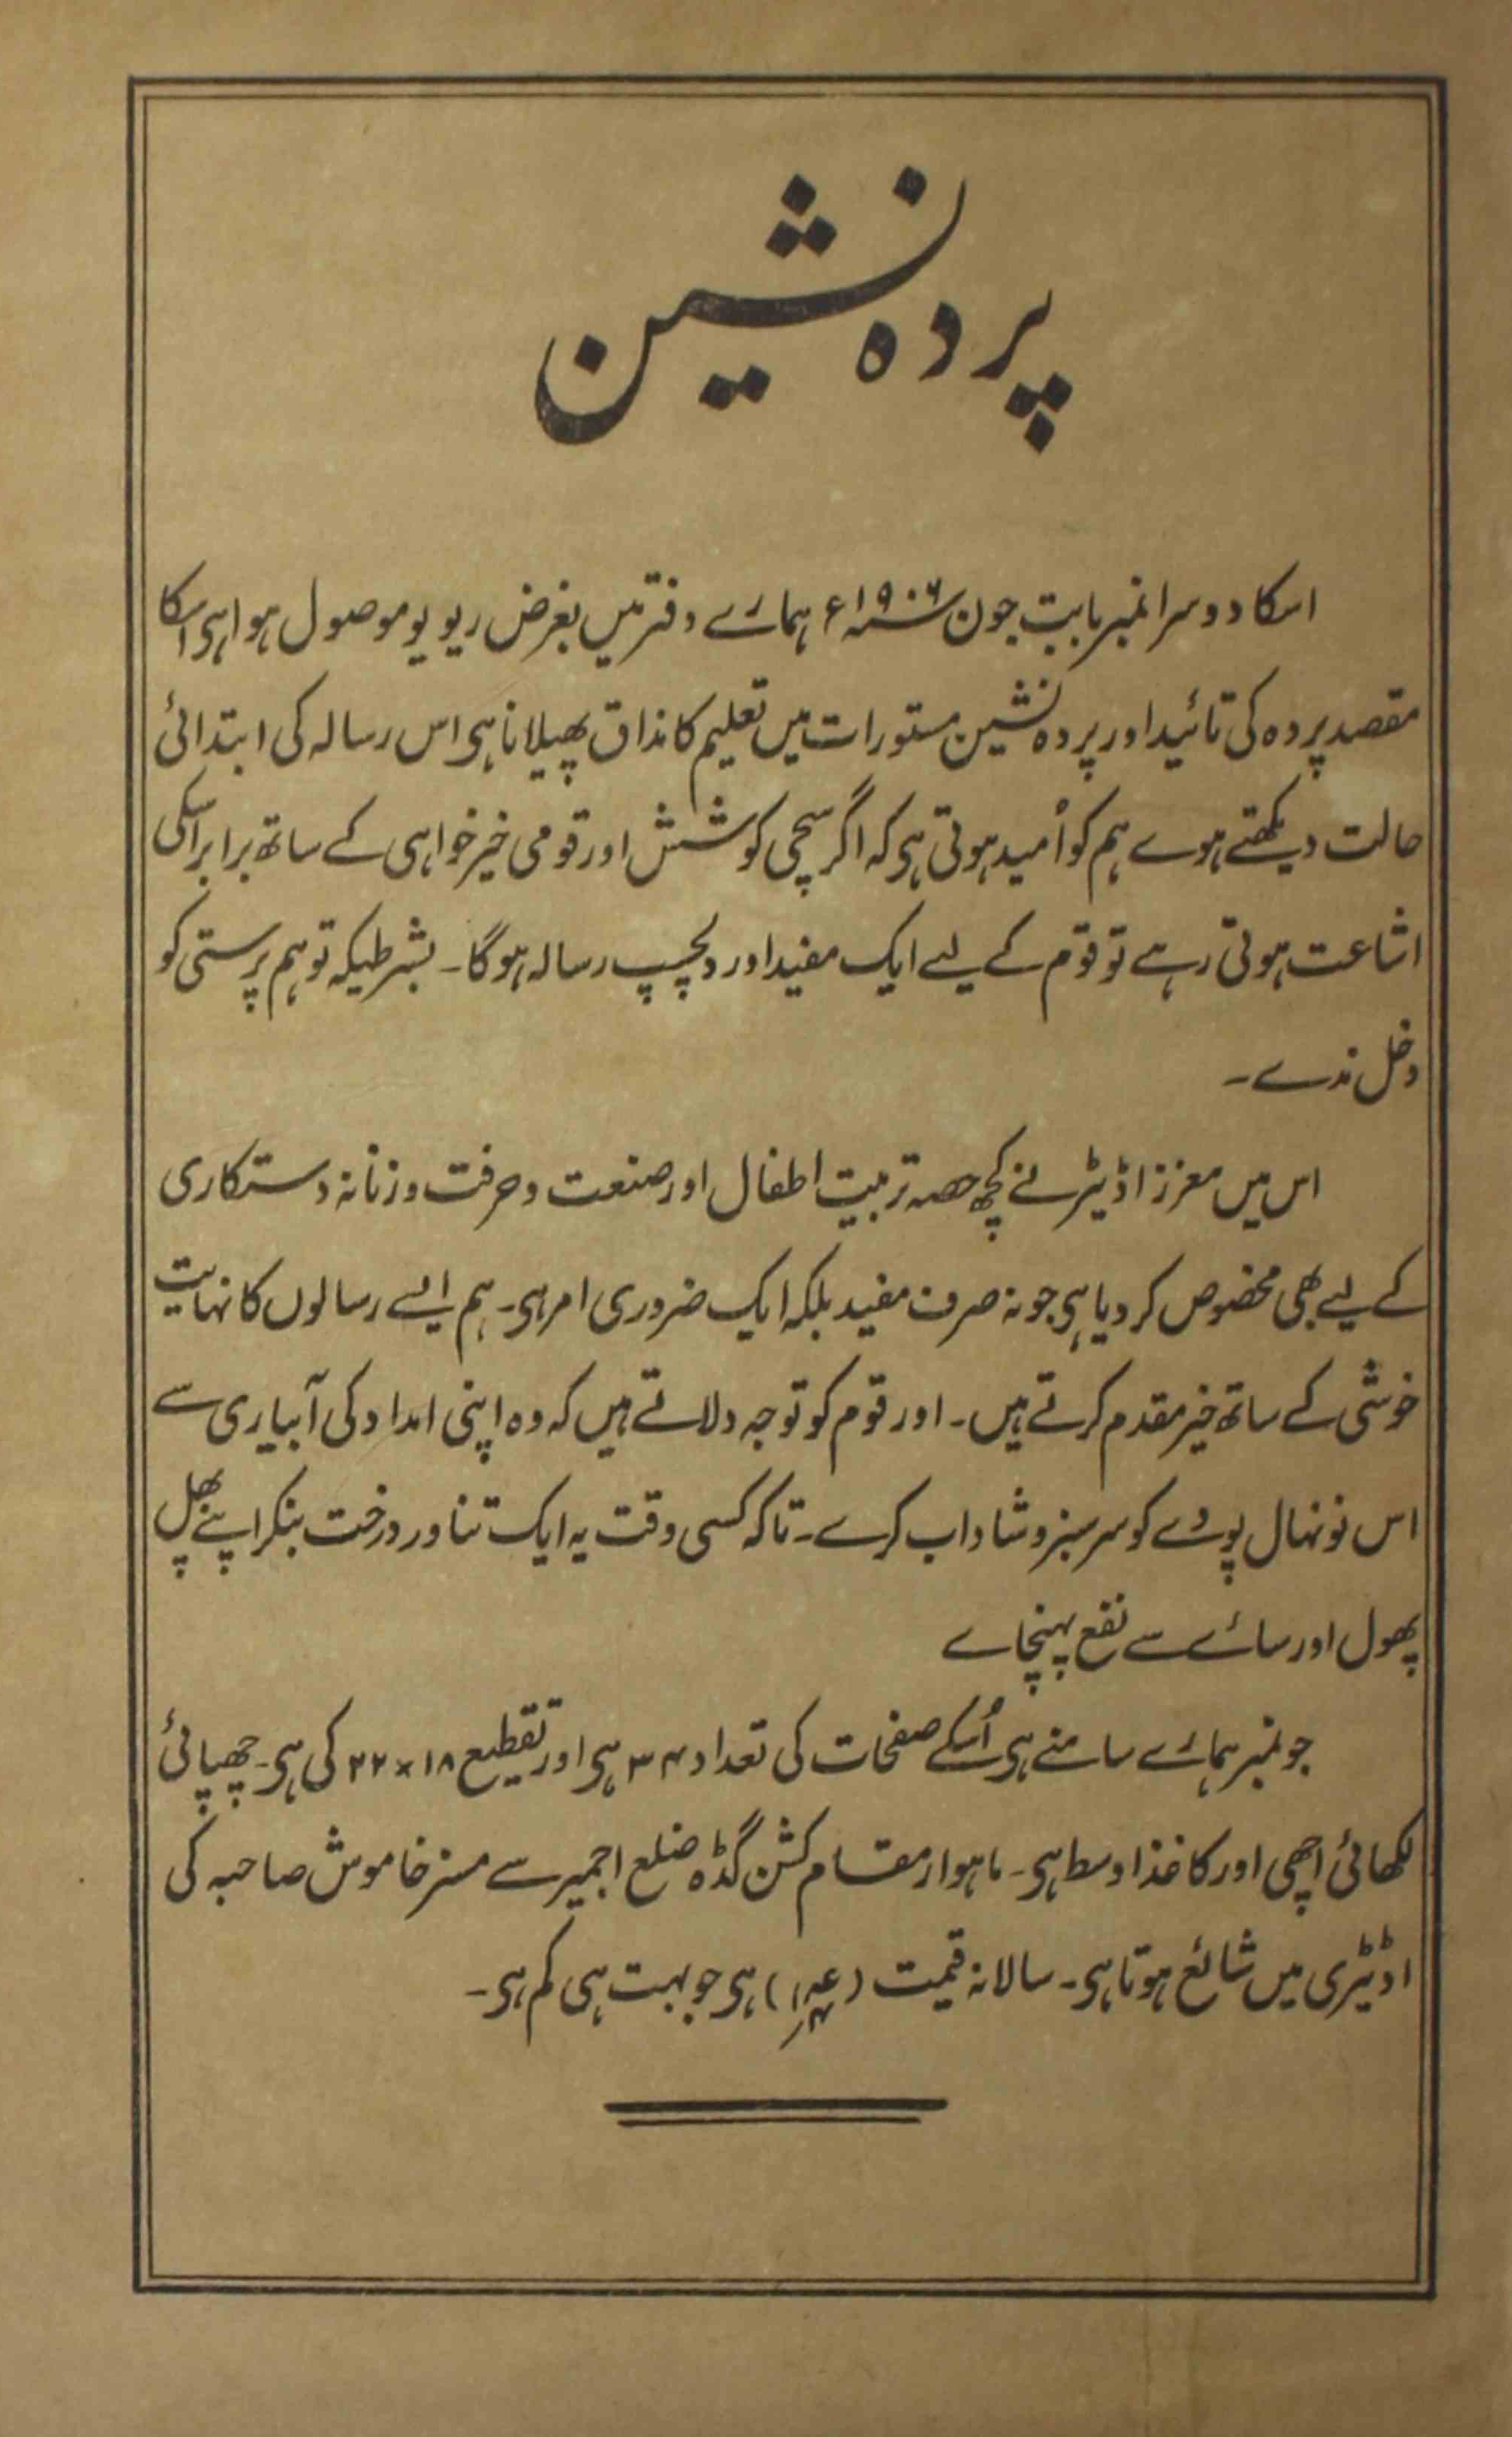 پردہ نشین
اسکا دوسرا نمبر بابت جون سنہ ۱۹۰۶ء ہمارے دفتر میں بغرض ریویو موصول ہوا ہی اسکا
مقصد پردہ کی تائید اور پردہ نشین مستورات میں تعلیم کا مذاق پھیلانا ہی اس رسالہ کی ابتدائی
حالت دیکھتے ہوے ہم کو اُمید ہوتی ہی کہ اگر سچی کوشش اور قومی خیر خواہی کے ساتھ برابر اسکی
اشاعت ہوتی رہے تو قوم کے لیے ایک مفید اور دلچسپ رسالہ ہوگا۔ بشرطیکہ توہم پرستی کو
دخل ندے۔
اس میں معزز اڈیٹر نے کچھ حصہ تربیت اطفال اور صنعت و حرفت و زنانہ دستکاری
کے لیے بھی مخصوص کر دیا ہی جو نہ صرف مفید بلکہ ایک ضروری امر ہی۔ ہم ایسے رسالوں کا نہایت
خوشی کے ساتھ خیر مقدم کرتے ہیں۔ اور قوم کو توجہ دلاتے ہیں کہ وہ اپنی امداد کی آبیاری سے
اس نونہال پودے کو سرسبز و شاداب کرے۔ تاکہ کسی وقت یہ ایک تناور درخت بنکر اپنے پھل
پھول اور سائے سے نفع پہنچاے
جو نمبر ہمارے سامنے ہی اُسکے صفحات کی تعداد ۳۴ ہی اور تقطیع ۱۸×۲۲ کی ہی۔ چھپائی
لکھائی اچھی اور کاغذ اوسط ہی۔ ماہوار مقام کشن گڈہ ضلع اجمیر سے مسز خاموش صاحبہ کی
اڈیٹری میں شائع ہوتا ہی۔ سالانہ قیمت ( ) ہی جو بہت ہی کم ہی۔